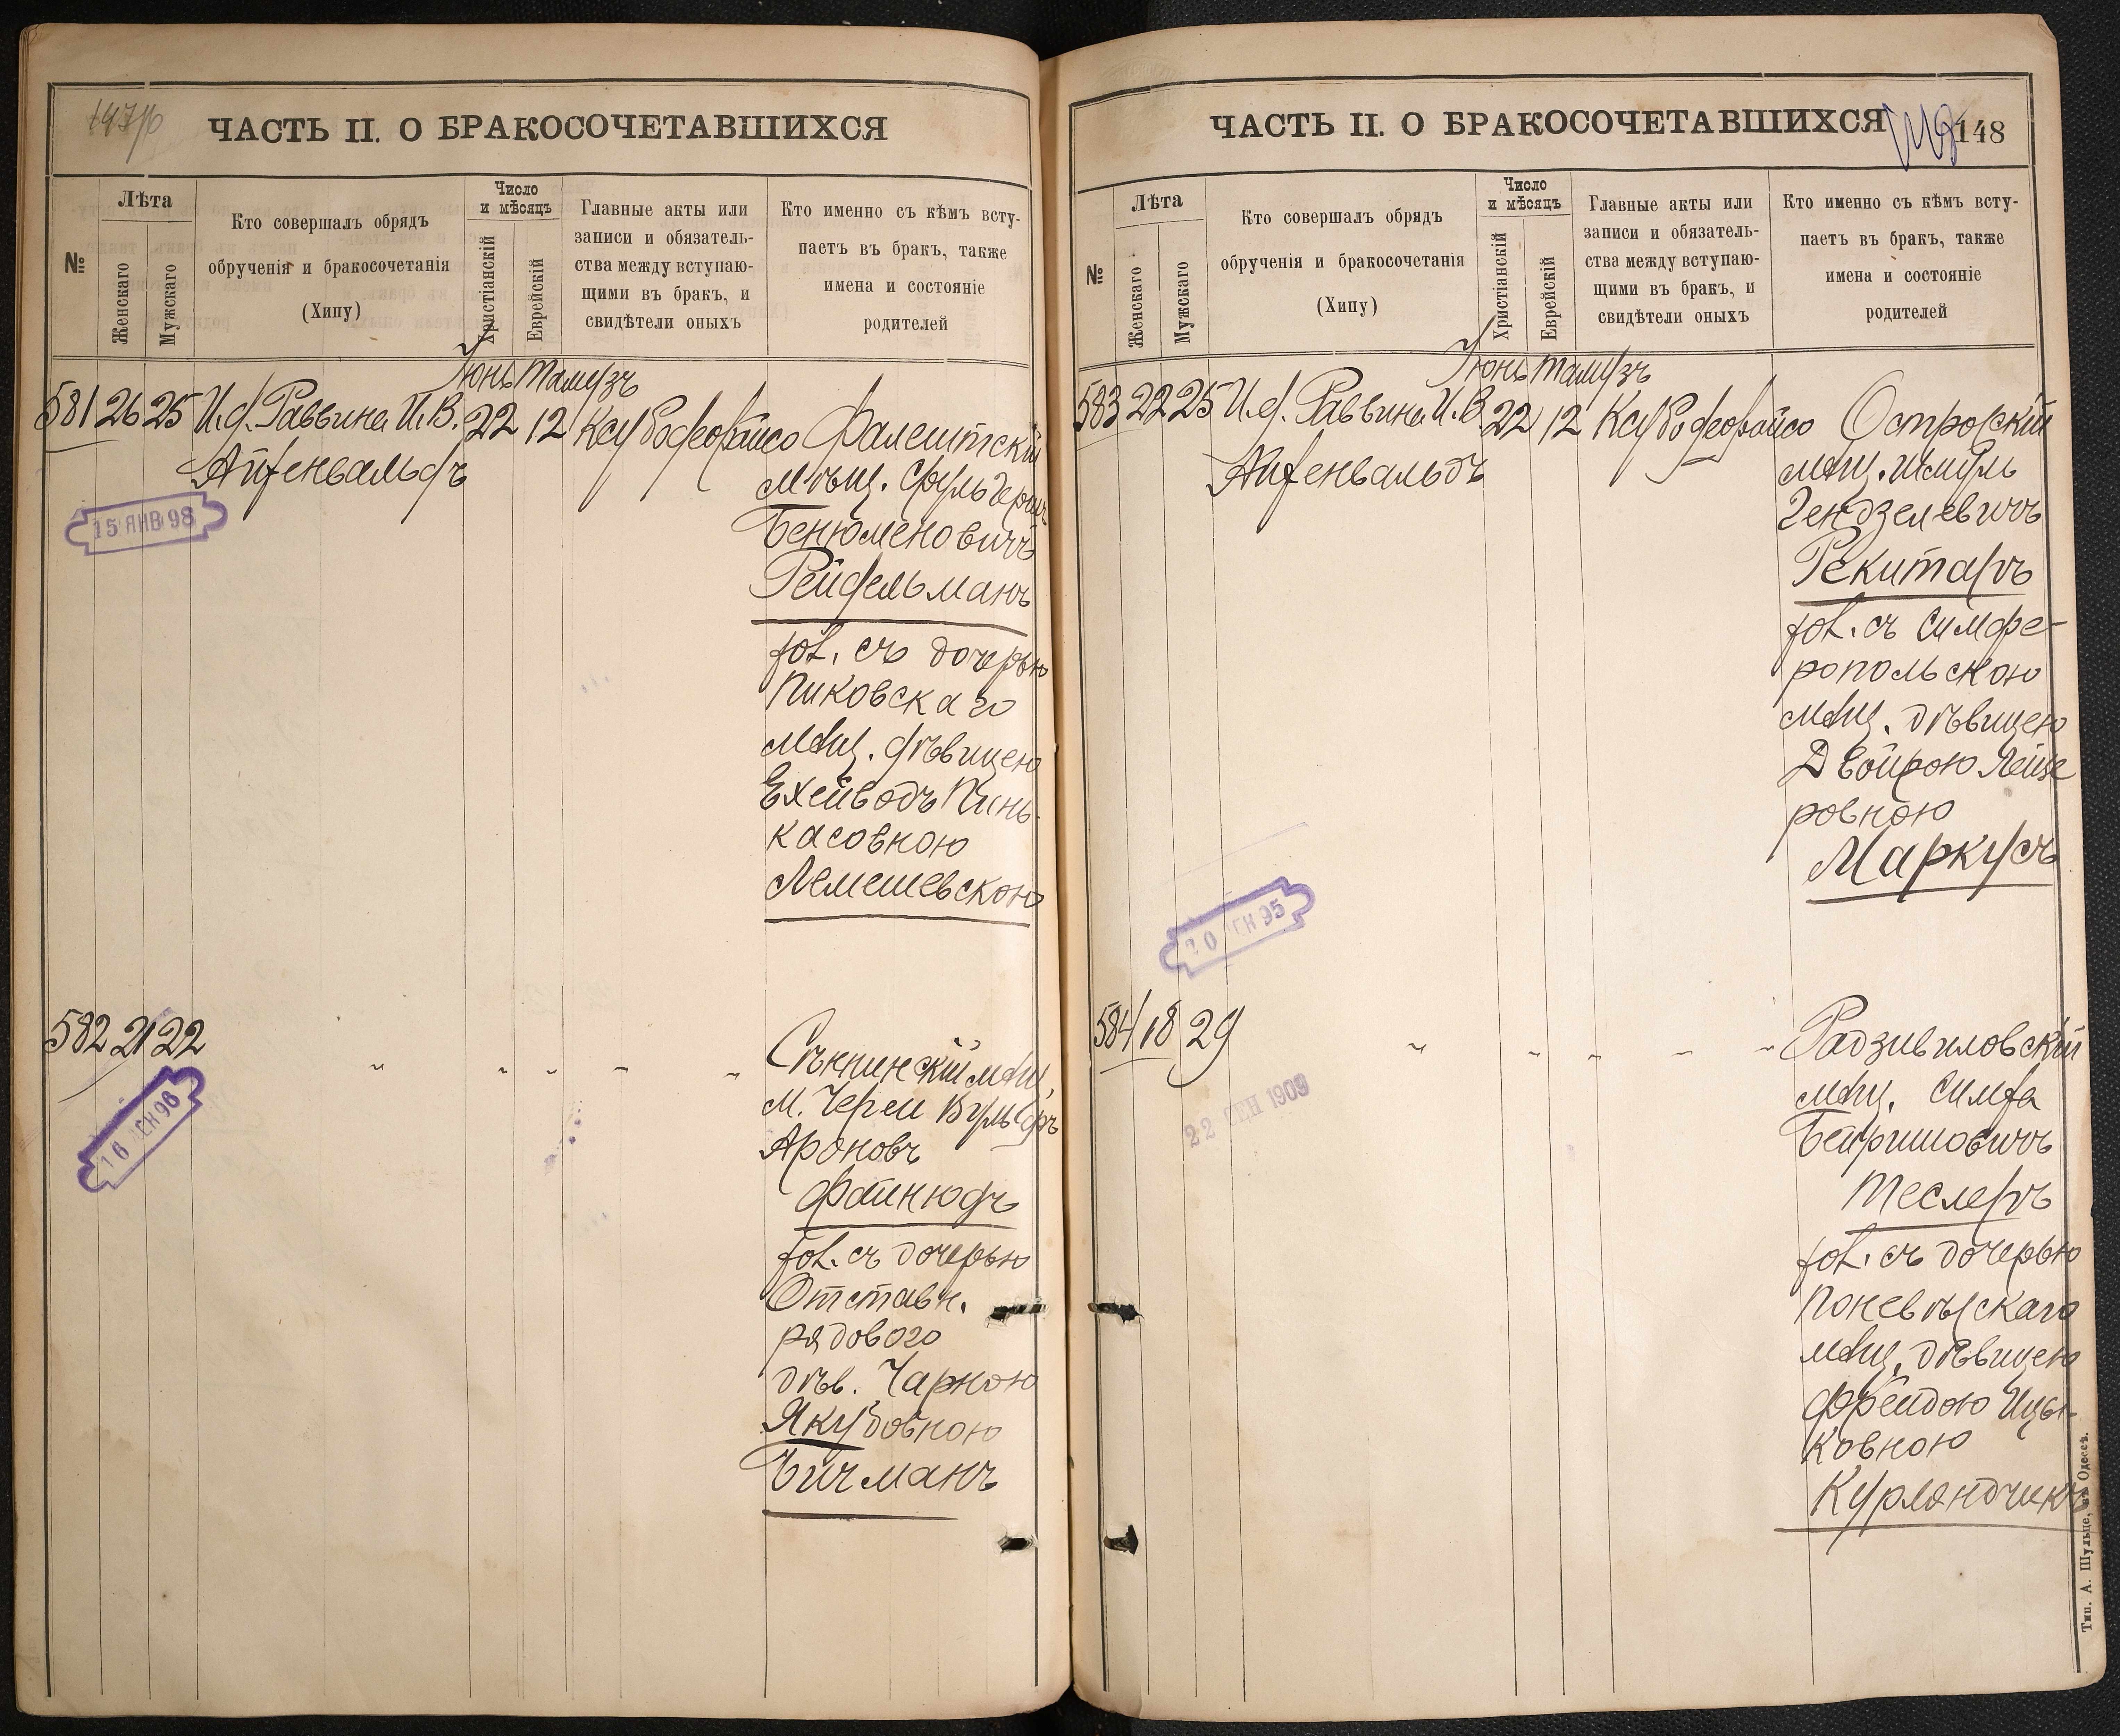 ЧАСТЬ II. О БРАКОСОЧЕТАВШИХСЯ
№
Лѣта
Женскаго
Мужскаго
Кто совершалъ обрядъ
обрученія и бракосочетанія
(Хипу)
Число
и мѣсяцъ
Христіанскій
Еврейскій
Главные акты или
записи и обязатель-
ства между вступаю-
щими въ бракъ, и
свидѣтели оныхъ
Кто именно съ кѣмъ всту-
паетъ въ бракъ, также
имена и состояніе
родителей
Іюнь Тамузъ
581 26 25 И.д. Раввина И.В. 22 12 Фалештскій
Айзенвальдъ
мѣщ.
Бенюменовичъ
Рейдельманъ
хол. съ дочерью
Пиковскаго
мѣщ. дѣвицею
Ехейводъ Пинь-
касовною
Лемешевскою
15 ЯНВ 98
582 21 22 " " " " " Сѣннинскій мѣщ.
м. Череи
Ароновъ
Файнюдъ
хол. съ дочерью
Отставн.
рядового
дѣв. Чарною
Якубовною
Бичманъ
ЧАСТЬ II. О БРАКОСОЧЕТАВШИХСЯ
148
№
Лѣта
Женскаго
Мужскаго
Кто совершалъ обрядъ
обрученія и бракосочетанія
(Хипу)
Число
и мѣсяцъ
Христіанскій
Еврейскій
Главные акты или
записи и обязатель-
ства между вступаю-
щими въ бракъ, и
свидѣтели оныхъ
Кто именно съ кѣмъ всту-
паетъ въ бракъ, также
имена и состояніе
родителей
Іюнь Тамузъ
583 22 25 И.д. Раввина И.В. 22 12 Острогскій
Айзенвальдъ
мѣщ. Шмуль
Гендзелевичъ
Рекитаръ
хол. съ Симфе-
ропольскою
мѣщ. дѣвицею
Двойрою Лейзе
ровною
Маркусъ
584 18 29 " " " " " Радзивиловскій
мѣщ. Симха
Бейришовичъ
Теслеръ
хол. съ дочерью
Поневѣжскаго
мѣщ. дѣвицею
Фрейдою Ицы-
ковною
Курляндчикъ
22 СЕН 1909
Тип. А. Шульце, въ Одессѣ.